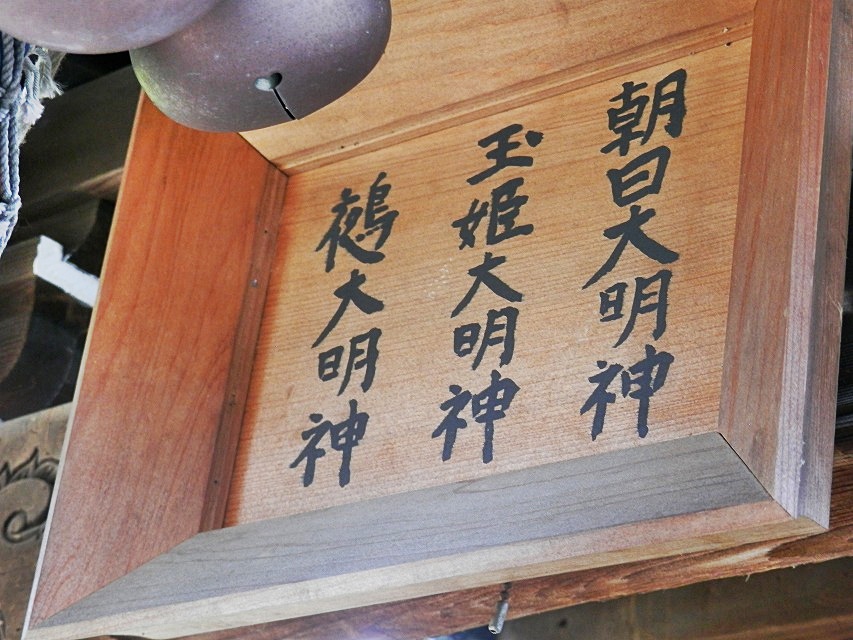 朝日大明神
玉姫大明神
鵺大明神